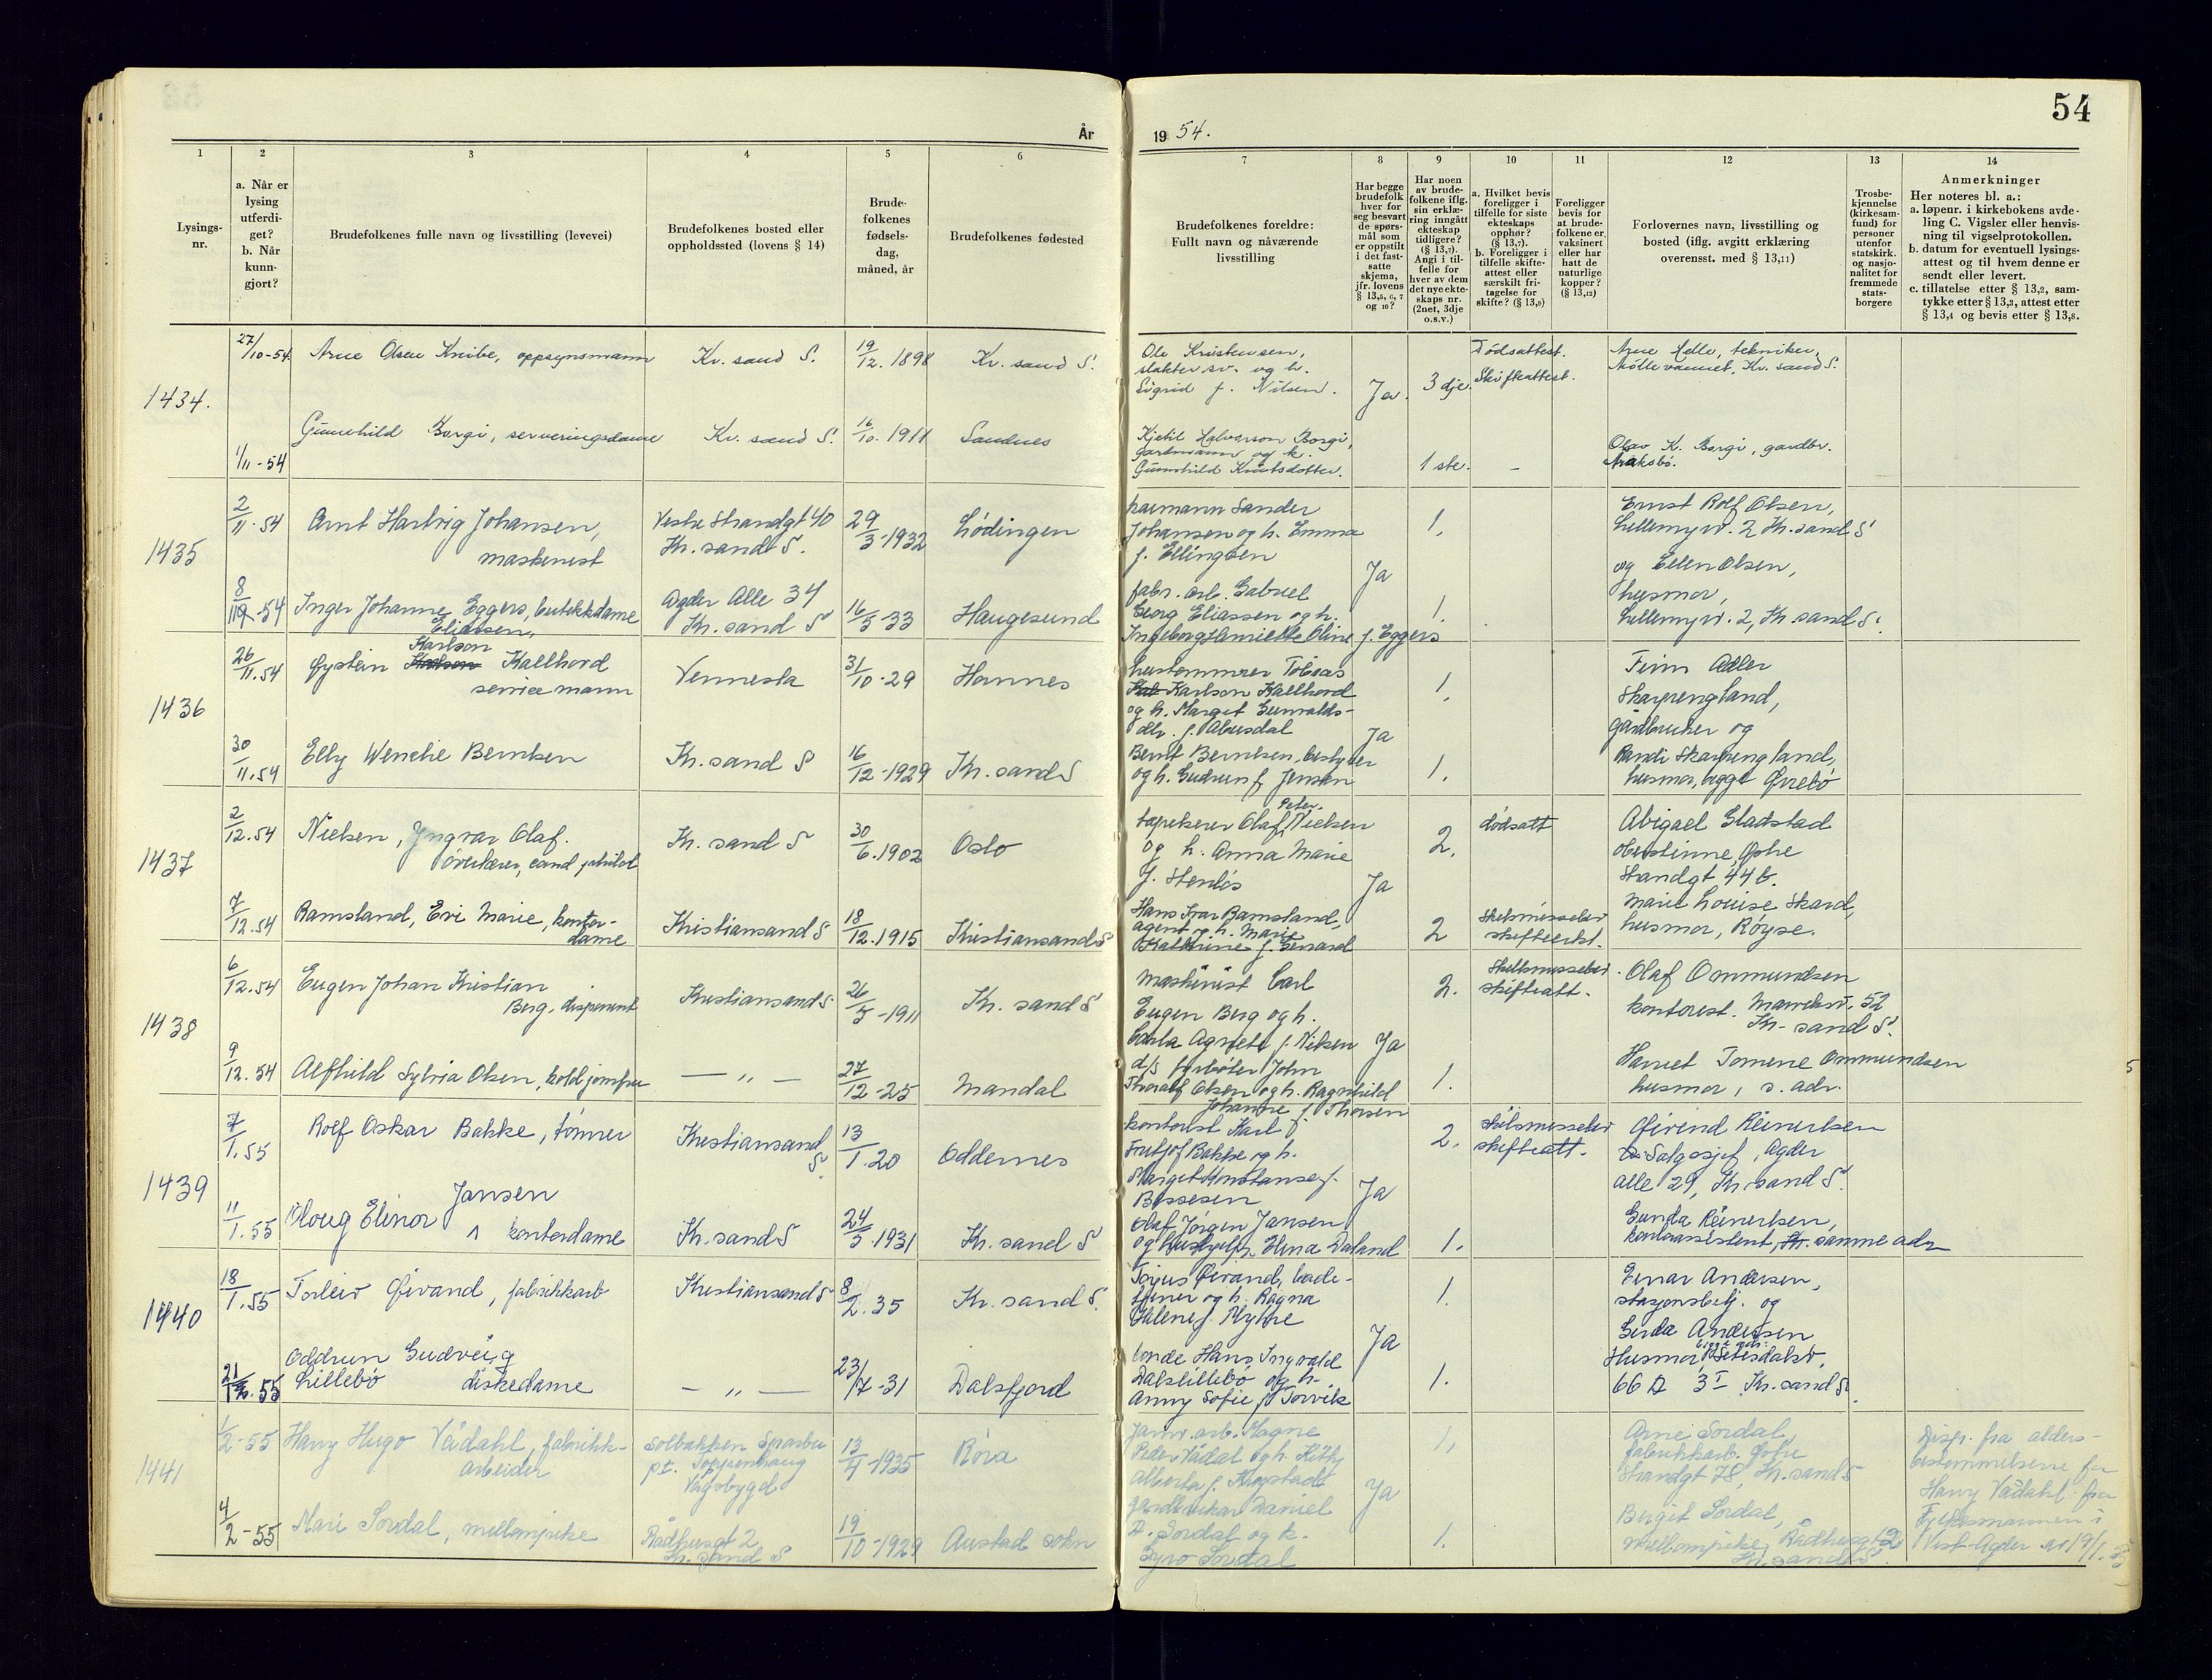 54
År
19 54.
1
2
3
4
5
6
7
8
9
10
11
12
13
14
Lysings-
nr.
a. Når er
lysing
utferdi-
get?
b. Når
kunn-
gjort?
Brudefolkenes fulle navn og livsstilling (levevei)
Brudefolkenes bosted eller
oppholdssted (lovens § 14)
Brude-
folkenes
fødsels-
dag,
måned, år
Brudefolkenes fødested
Brudefolkenes foreldre:
Fullt navn og nåværende
livsstilling
Har begge
brudefolk
hver for
seg besvart
de spørs-
mål som
er oppstilt
i det fast-
satte
skjema,
jfr. lovens
§ 13,5, 6, 7
og 10?
Har noen
av brude-
folkene iflg.
sin erklæ-
ring inngått
ekteskap
tidligere?
(§ 13,7).
Angi i til-
felle for
hver av dem
det nye ekte-
skaps nr.
(2net, 3dje
o.s.v.)
a. Hvilket bevis
foreligger i
tilfelle for siste
ekteskaps
opphør?
(§ 13,7).
b. Foreligger i
tilfelle skifte-
attest eller
særskilt fri-
tagelse for
skifte? (§ 13,9)
Foreligger
bevis for
at brude-
folkene er
vaksinert
eller har
hatt de
naturlige
kopper?
(§ 13,12)
Forlovernes navn, livsstilling og
bosted (iflg. avgitt erklæring
overensst. med § 13,11)
Trosbe-
kjennelse
(kirkesam-
fund) for
personer
utenfor
statskirk.
og nasjo-
nalitet for
fremmede
stats-
borgere
Anmerkninger
Her noteres bl. a.:
a. løpenr. i kirkebokens avde-
ling C. Vigsler eller henvis-
ning til vigselprotokollen.
b. datum for eventuell lysings-
attest og til hvem denne er
sendt eller levert.
c. tillatelse etter § 13,2, sam-
tykke etter § 13,3, attest etter
§ 13,4 og bevis etter § 13,8.
1434.
27/10-54
Arne Olsen Knibe, oppsynsmann
Kr. sand S.
19/12. 1898
Kr. sand S.
Ole Kristensen,
slakter sv. og h.
Sigrid f. Nilsen.
Ja.
3 dje.
Dødsattest.
Skifteattest.
Arne Helle, tekniker,
Møllevannet, Kr. sand S.
1/11-54
Gunnhild Borgi, serveringsdame
Kr. sand S.
16/10. 1911
Sandnes
Kjetil Halvorson Borgi,
gardmann og k.
Gunnhild Knutsdotter.
1 ste.
-
Olav K. Borgi, gardbr.
Åraksbø.
1435
2/11-54
Arnt Hartvig Johansen,
maskinist
Vestre Strandgt 40
Kr. sand S.
29/3-1932
Lødingen
havmann Sander
Johansen og h. Emma
f. Ellingsen
Ja
1.
Ernst Rolf Olsen,
Lillemyrv. 2 Kr. sand S
og Ellen Olsen,
husmor,
Lillemyrv. 2, Kr sand S.
8/11-54
Inger Johanne Eggers, butikkdame
Eliassen,
Agder Alle 34
Kr. sand S
16/5-33
Haugesund
fabr. arb. Gabriel
Georg Eliassen og h.
Ingeborg Henriette Oline f. Eggers
1.
1436
26/11.54
Karlson
Øystein Kallhovd
servicemann
Vennesla
31/10-29
Hornnes
hustømmrer Tobias
Karlson Kallhovd
og h. Margit Gunvalds-
dtr. f. Åbusdal
Ja
1.
Finn Adler
Skarpengland,
gårdbruker og
Randi Skarpengland,
husmor, begge Øvrebø
30/11.54
Elly Wenche Berntsen
Kr. sand S
16/12-1929
Kr. sand S
Bernt Berntsen, bestyrer
og h. Gudrun f. Jensen
1.
1437
2/12.54
Nielsen, Yngvar Olaf.
overlærer, cand philol
Kr. sand S
30/6.1902
Oslo
Peter.
tapetserer Olaf Nielsen
og h. Anna Marie
f. Stenløs
Ja
2.
dødsatt
Abigael Gladstad
oberstinne, Østre
Strandgt 44 b.
Marie Louise Skard,
husmor, Røyse.
7/12.54
Ramsland, Evi Marie, kontor-
dame
Kristiansand S
18/12.1915
Kristiansand S
Hans Ivar Ramsland,
agent, og h. Marie
Kathrine f. Genard
2
Skilsmissebev
skifteerkl.
1438
6/12.54
Eugen Johan Kristian
Berg, disponent
Kristiansand S.
26/5-1911
Kr. sand S
maskinist Carl
Eugen Berg og h.
Carla Agnete f. Nilsen
Ja
2.
Skilsmissebev.
skifteatt.
Olaf Ommundsen
kontorist. Marviksv. 52
Kr. sand S.
9/12.54
Alfhild Sylvia Olsen, koldjomfru
— „ —
27/12-25
Mandal
d/s fyrbøter John
Thoralf Olsen og h. Ragnhild
Johanne f. Thorsen
1.
Harriet Tomine Ommundsen
husmor, s. adr.
1439
7/1.55
Rolf Oskar Bakke, tømrer
Kristiansand
S.
13/1.20
Oddernes
kontorist Karl
Fritjof Bakke og h.
Margit Konstanse f.
Bessesen
Ja
2.
skilsmissebev
skifteatt.
Øivind Reinertsen
Salgssjef, Agder
alle 29, Kr. sand S.
11/1.55
Jansen
Oloug Elinor kontordame
Kr. sand S
24/5.1931
Kr. sand S
Olaf Jørgen Jansen
og hushjelp. Elina Daland
1.
Gunda Reinertsen,
kontorassistent, samme adr
1440
18/1.55
Torleiv Øivand, fabrikkarb
Kristiansand S
8/2.35
Kr. sand S.
Torjus Øivand, bade-
tjener og h. Ragna
Halene f. Myhre
Ja
1.
Einar Andersen,
stasjonsbetj. og
Gerda Andersen
Husmor Setesdalsv.
66 A 3 I Kr. sand S.
21/1.55
Oddrun Gudveig
Lillebø diskedame
— „ —
23/7-31
Dalsfjord
bonde Hans Ingvald
Dalslillebø og h.
Anny Sofie f. Torvik
1.
1441
1/2-55
Harry Hugo Vådahl, fabrikk-
arbeider
Solbakken Sparbu
pt.
Vågsbygd
13/4-1935
Røra
Jernv. arb. Magne
Peder Vådal og h. Kitty
Alberta f. Mogstad
Ja
1.
Arne Sordal,
fabrikkarb. Østre
Strandgt 78, Kr. sand S
Disp. fra alders-
bestemmelsene for
Harry Vådahl fra
Fylkesmannen i
Vest-Agder av 19/1.55
4/2-55
Mari Sordal, mellompike
Rådhusgt 2
Kr. sand S
19/10-1929
Austad sokn
gardbrukar Daniel
D. Sordal og k.
Gyro Sordal
1.
Birgit Sordal,
mellompike, Rådhusgt 2
Kr. sand S.